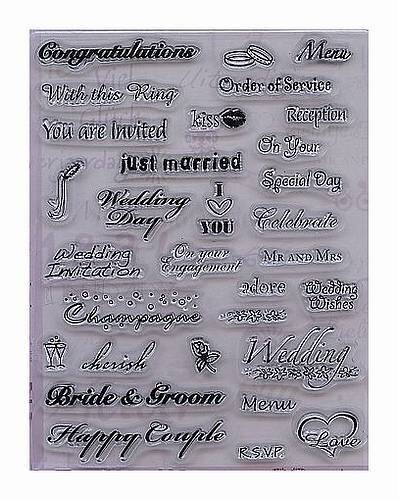 Congratulations
Menu
With this Ring
Order of Service
You are Invited
kiss
Reception
On Your
just married
Special Day
Wedding
Day
I
YOU
Celebrate
Wedding
Invitation
On your
Engagement
Mr and Mrs
adore
Wedding
Wishes
Champagne
cherish
Wedding
Bride & Groom
Menu
Happy Couple
R.S.V.P.
Love